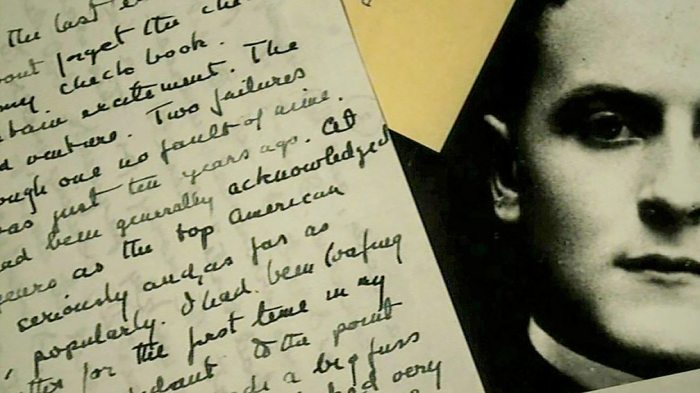 the last
out forget the che
my check book.
excitement. The
venture. Two failures
ough one no fault of mine.
as just ten years ago. At
ad been generally acknowledged
years as the top American
seriously and, as far as
popularly. I had been loafing
for the first time in my
to the point
a big fuss
had very